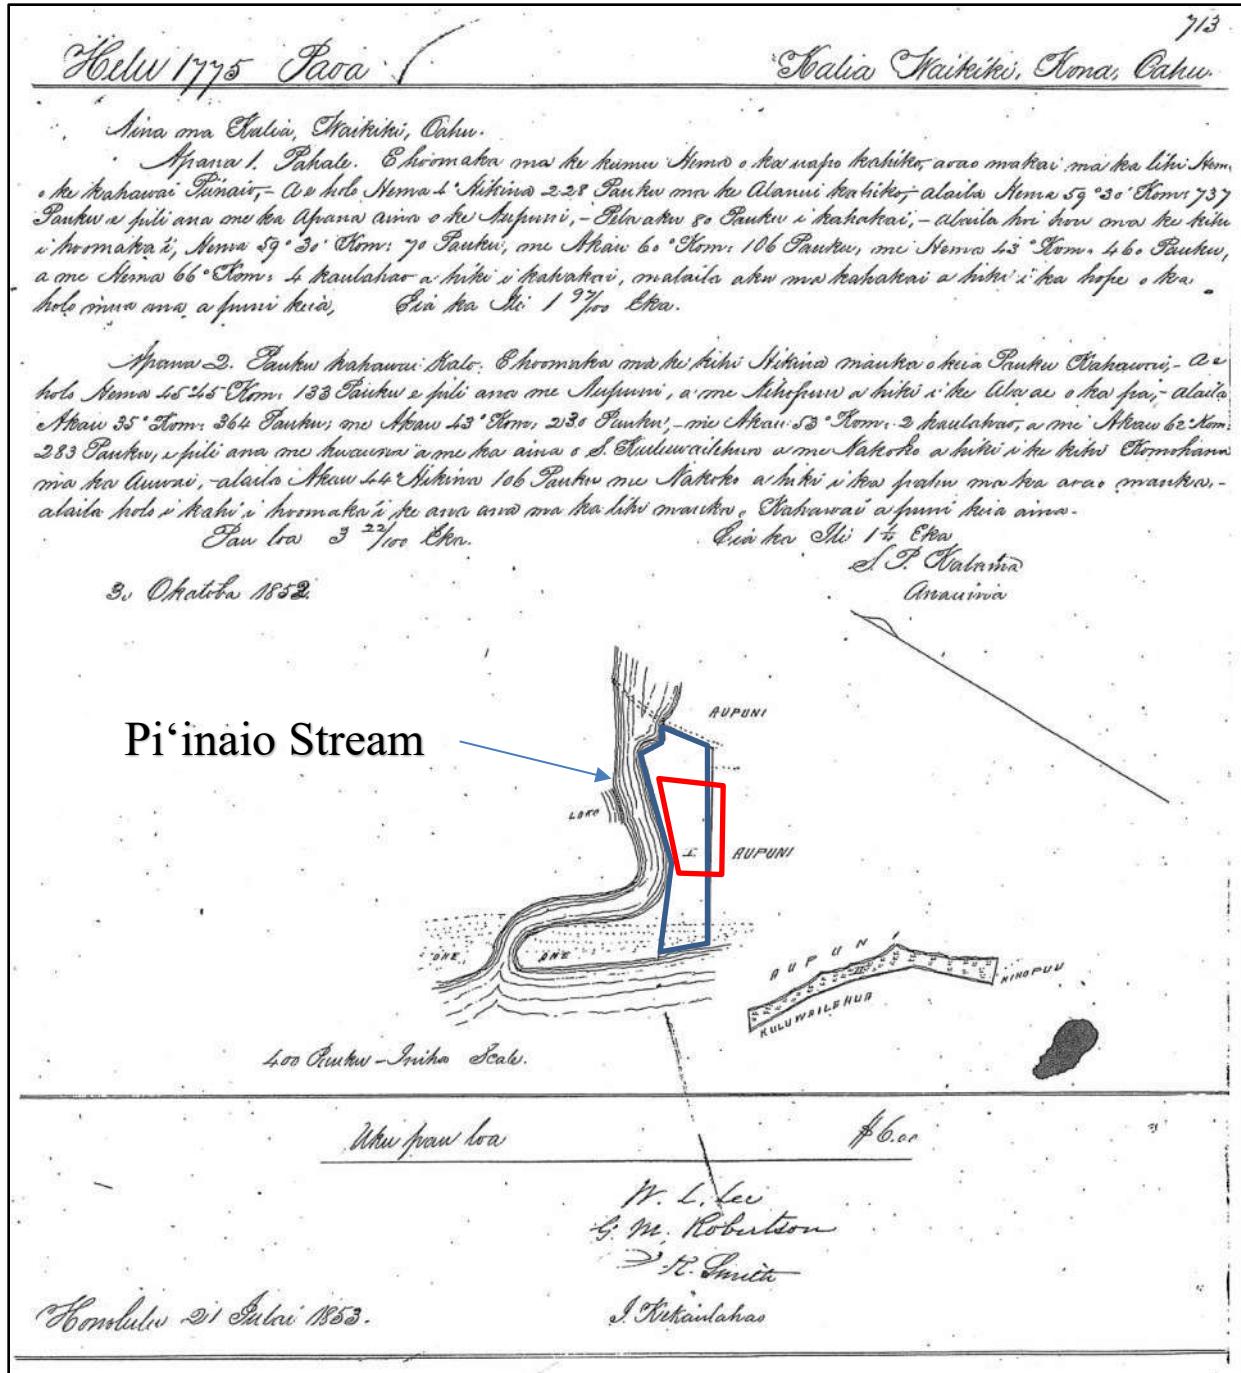 713
Helu 1775 Paoa
Kalia Waikiki, Kona, Oahu.
Aina ma Kalia, Waikiki, Oahu.
Apana 1. Pahale. E hoomaka ma ke kumu Hema o ka uapo kahiko, aoao makai ma ka lihi Hem
o ke kahawai Piinaio,- A e holo Hema 4° Hikina 228 Pauku ma ke Alanui kahiko,- alaila Hema 59° 30' Kom: 737
Pauku e pili ana me ka Apana aina o ke Aupuni,- Pela aku 80 Pauku i kahakai,- alaila hoi hou ma ke kihi
i hoomaka'i, Hema 59° 30' Kom: 70 Pauku, me Akau 60° Kom: 106 Pauku, me Hema 43° Kom. 460 Pauku,
a me Hema 66° Kom: 4 kaulahao a hiki i kahakai, malaila aku ma kahakai a hiki i ka hope o ka
holo mua ana a puni keia, Eia ka Ili 1 97/100 Eka.
Apana 2. Pauku kahawai Kalo. E hoomaka ma ke kihi Hikina mauka o keia Pauku Kahawai,- A e
holo Hema 45° 45' Kom: 133 Pauku e pili ana me Aupuni, a me Nihopuu a hiki i ke Alu ae o ka pa,- alaila
Akau 35° Kom: 364 Pauku, me Akau 43° Kom: 230 Pauku,- me Akau 53° Kom: 2 kaulahao, a me Akau 62° Kom:
283 Pauku, e pili ana me kuauna a me ka aina o S. Kuluwailehua a me Nakoko a hiki i ke kihi Komohana
ma ka Auwai,- alaila Akau 44° Hikina 106 Pauku me Nakoko a hiki i ka pahu ma ka aoao mauka,-
alaila holo i kahi i hoomaka'i ke awa awa ma ka lihi mauka. Kahawai a puni keia aina.
Pau loa 3 22/100 Eka.
Eia ka Ili 1 1/4 Eka
S. P. Kalama
Anaaina
30 Okatoba 1852.
AUPUNI
Pi‘inaio Stream
LOKO
1
AUPUNI
ONE
ONE
AUPUNI
NIHOPUU
KULUWAILEHUA
400 Pauku - Iniha Scale.
Uku pau loa
$6.00
W. L. Lee
G. M. Robertson
Smith
J. Kekaulahao
Honolulu 21 Iulai 1853.